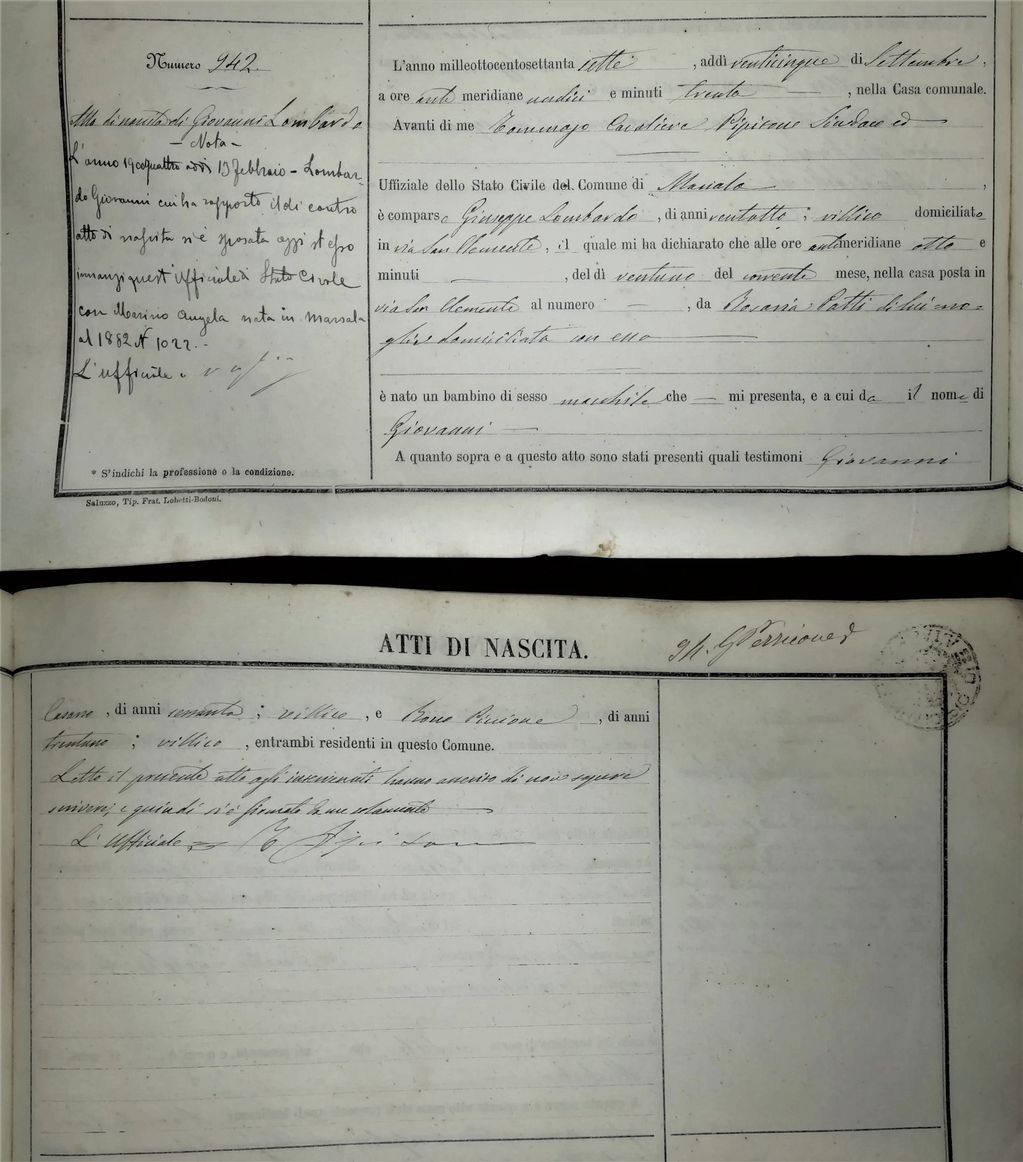 Numero 942.
Atto di nascita di Giovanni Lombardo
- Nota -
L'anno 19cquattro addì 13 febbraio - Lombar-
do Giovanni cui ha rapporto il di contro
atto di nascita si è sposato oggi stesso
innanzi quest'Ufficiale di Stato Civile
con Marino Angela nata in Marsala
al 1882 N 1022. -
L'ufficiale
* S'indichi la professione o la condizione.
Saluzzo, Tip. Frat. Lobetti-Bodoni.
L'anno milleottocentosettanta sette, addì venticinque di Settembre,
a ore anti meridiane undici e minuti trenta —, nella Casa comunale.
Avanti di me Tommaso Cavaliere Pipitone Sindaco ed
Uffiziale dello Stato Civile del Comune di Marsala,
è comparso Giuseppe Lombardo, di anni ventotto; villico domiciliato
in via San Clemente, il quale mi ha dichiarato che alle ore antimeridiane otto e
minuti —, del dì ventuno del corrente mese, nella casa posta in
via San Clemente al numero —, da Rosaria Patti di lui mo-
glie domiciliata con esso
è nato un bambino di sesso maschile che — mi presenta, e a cui dà il nome di
Giovanni —
A quanto sopra e a questo atto sono stati presenti quali testimoni Giovanni
ATTI DI NASCITA.
G Perricone
Casano, di anni sessanta; villico, e Bono, di anni
trentuno; villico, entrambi residenti in questo Comune.
Letto il presente atto agli intervenuti hanno asserito di non sapere
scrivere, e quindi si è firmato da me solamente
L'Ufficiale